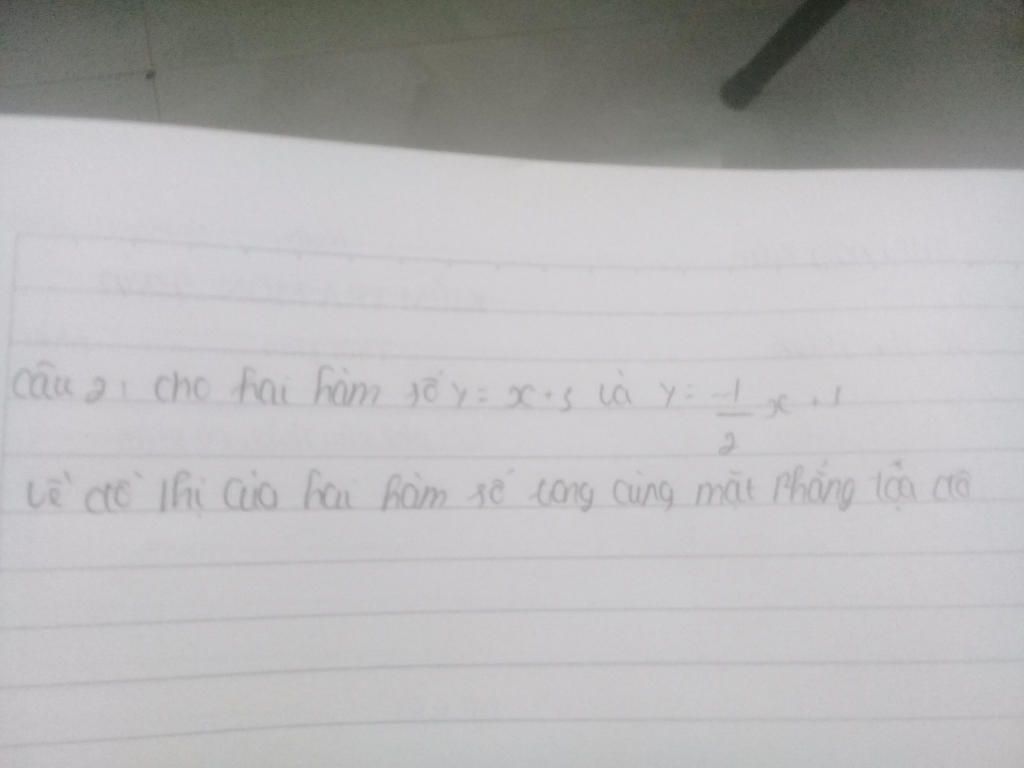 Câu 2: cho hai hàm số y = x + 3 và y = \frac{-1}{2} x + 1
vẽ đồ thị của hai hàm số tong cùng mặt phẳng tọa độ